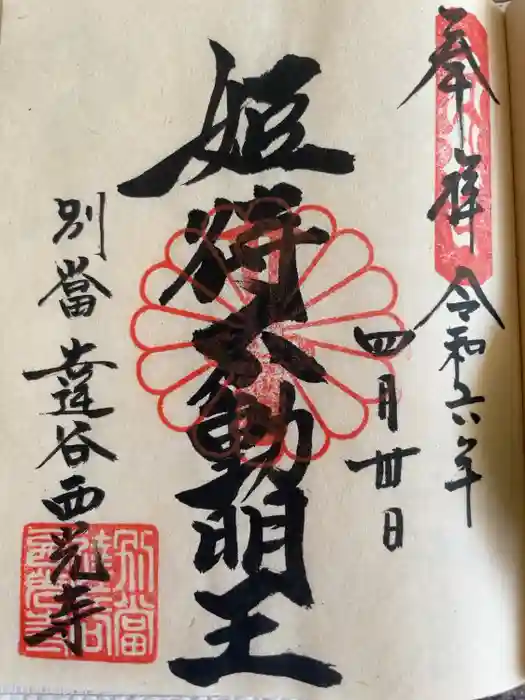 奉拝
令和六年
四月廿日
姫待不動明王
別當達谷西光寺